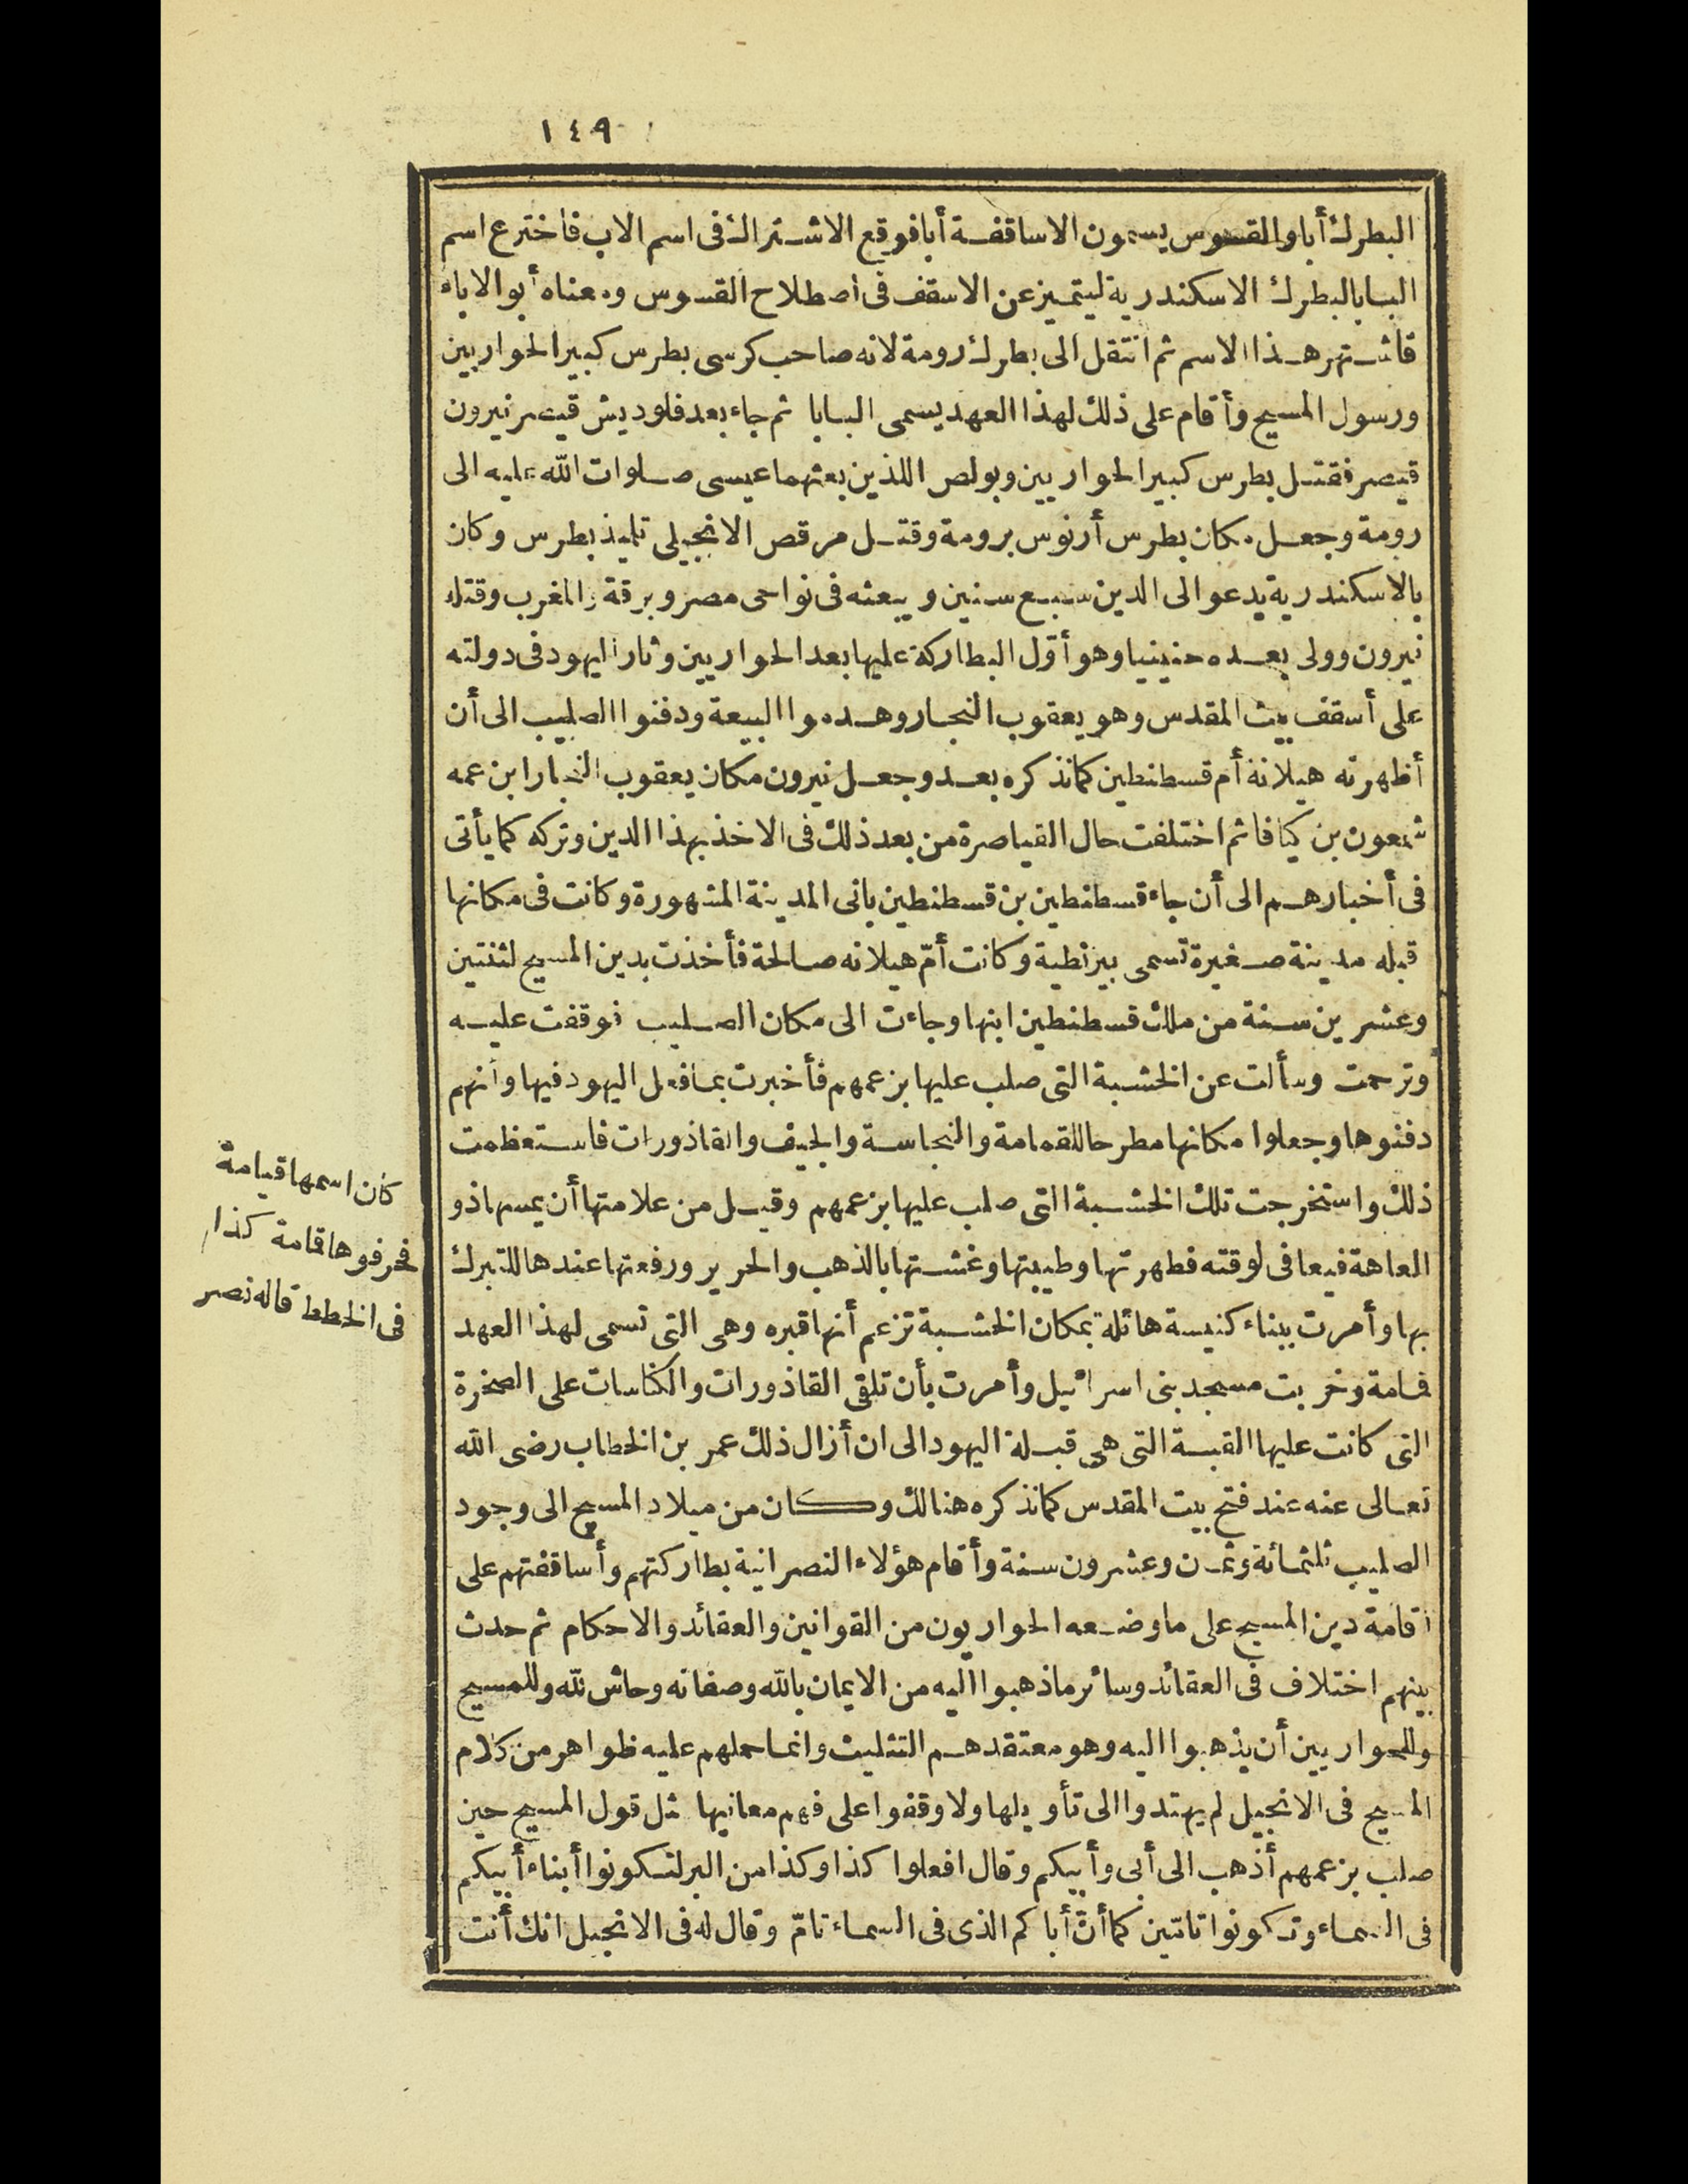 ١٤٩
البطرك أبا والقسوس يسمون الاساقفة أبا فوقع الاشتراك في اسم الاب فاخترع اسم
البابا لبطرك الاسكندرية ليتميز عن الاسقف في اصطلاح القسوس ومعناه أبو الاباء
فاشتهر هذا الاسم ثم انتقل الى بطرك رومة لانه صاحب كرسى بطرس كبير الحواريين
ورسول المسيح وأقام على ذلك لهذا العهد يسمى البابا ثم جاء بعد فلوديش قيصر نيرون
قيصر فقتل بطرس كبير الحواريين وبولص اللذين بعثهما عيسى صلوات الله عليه الى
رومة وجعل مكان بطرس أرنوس برومة وقتل مرقص الانجيلى تلميذ بطرس وكان
بالاسكندرية يدعو الى الدين سبع سنين ويبعثه فى نواحى مصر وبرقة والمغرب وقتله
نيرون وولى بعده حنينيا وهو أوّل البطاركة عليها بعد الحواريين وثار اليهود فى دولته
على أسقف بيت المقدس وهو يعقوب النجار وهدموا البيعة ودفنوا الصليب الى أن
أظهرته هيلانة أم قسطنطين كما نذكره بعد وجعل نيرون مكان يعقوب النجار ابن عمه
شمعون بن كيافا ثم اختلفت حال القياصرة من بعد ذلك فى الاخذ بهذا الدين وتركه كما يأتى
فى أخبارهم الى أن جاء قسطنطين بن قسطنطين بانى المدينة المشهورة وكانت فى مكانها
قبله مدينة صغيرة تسمى بيزنطية وكانت أمّ هيلانه صالحة فأخذت بدين المسيح لثنتين
وعشرين سنة من ملك قسطنطين ابنها وجاءت الى مكان الصليب فوقفت عليه
وترحمت وسألت عن الخشبة التى صلب عليها بزعمهم فأخبرت بما فعل اليهود فيها وأنهم
دفنوها وجعلوا مكانها مطرحا للقمامة والنجاسة والجيف والقاذورات فاستعظمت
ذلك واستخرجت تلك الخشبة التى صلب عليها بزعمهم وقيل من علامتها أن يمسها ذو
العاهة فيعافى لوقته فطهرتها وطيبتها وغشتها بالذهب والحرير ورفعتها عندها للتبرك
بها وأمرت ببناء كنيسة هائلة بمكان الخشبة تزعم أنها قبره وهى التى تسمى لهذا العهد
قمامة وخربت مسجد بنى اسرائيل وأمرت بأن تلقى القاذورات والكناسات على الصخرة
التى كانت عليها القبة التى هى قبلة اليهود الى ان أزال ذلك عمر بن الخطاب رضى الله
تعالى عنه عند فتح بيت المقدس كما نذكره هنالك وكان من ميلاد المسيح الى وجود
الصليب ثلثمائة وثمان وعشرون سنة وأقام هؤلاء النصرانية بطاركتهم وأساقفتهم على
اقامة دين المسيح على ما وضعه الحواريون من القوانين والعقائد والاحكام ثم حدث
بينهم اختلاف فى العقائد وسائر ما ذهبوا اليه من الايمان بالله وصفاته وحاش لله وللمسيح
وللحواريين أن يذهبوا اليه وهو معتقدهم التثليث وانما حملهم عليه ظواهر من كلام
المسيح فى الانجيل لم يهتدوا الى تأويلها ولا وقفوا على فهم معانيها مثل قول المسيح حين
صلب بزعمهم أذهب الى أبى وأبيكم وقال افعلوا كذا وكذا من البر لتكونوا أبناء أبيكم
فى السماء وتكونوا تامّين كما أنّ أباكم الذى فى السماء تامّ وقال له فى الانجيل انك أنت
كان اسمها قيامة
فحرفوها قمامة كذا
فى الخطط قاله نصر